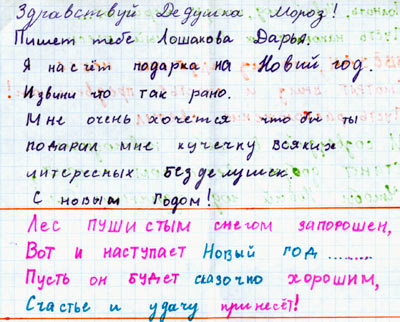 Здравствуй Дедушка Мороз!
Пишет тебе Лошакова Дарья.
Я насчёт подарка на Новий год.
Извини что так рано.
Мне очень хочется что бы ты
подарил мне кучечку всяких
интересных безделушек.
С новым годом!
Лес пушистым снегом запорошен,
Вот и наступает Новый год.........
Пусть он будет сказочно хорошим,
Счастье и удачу принесёт!